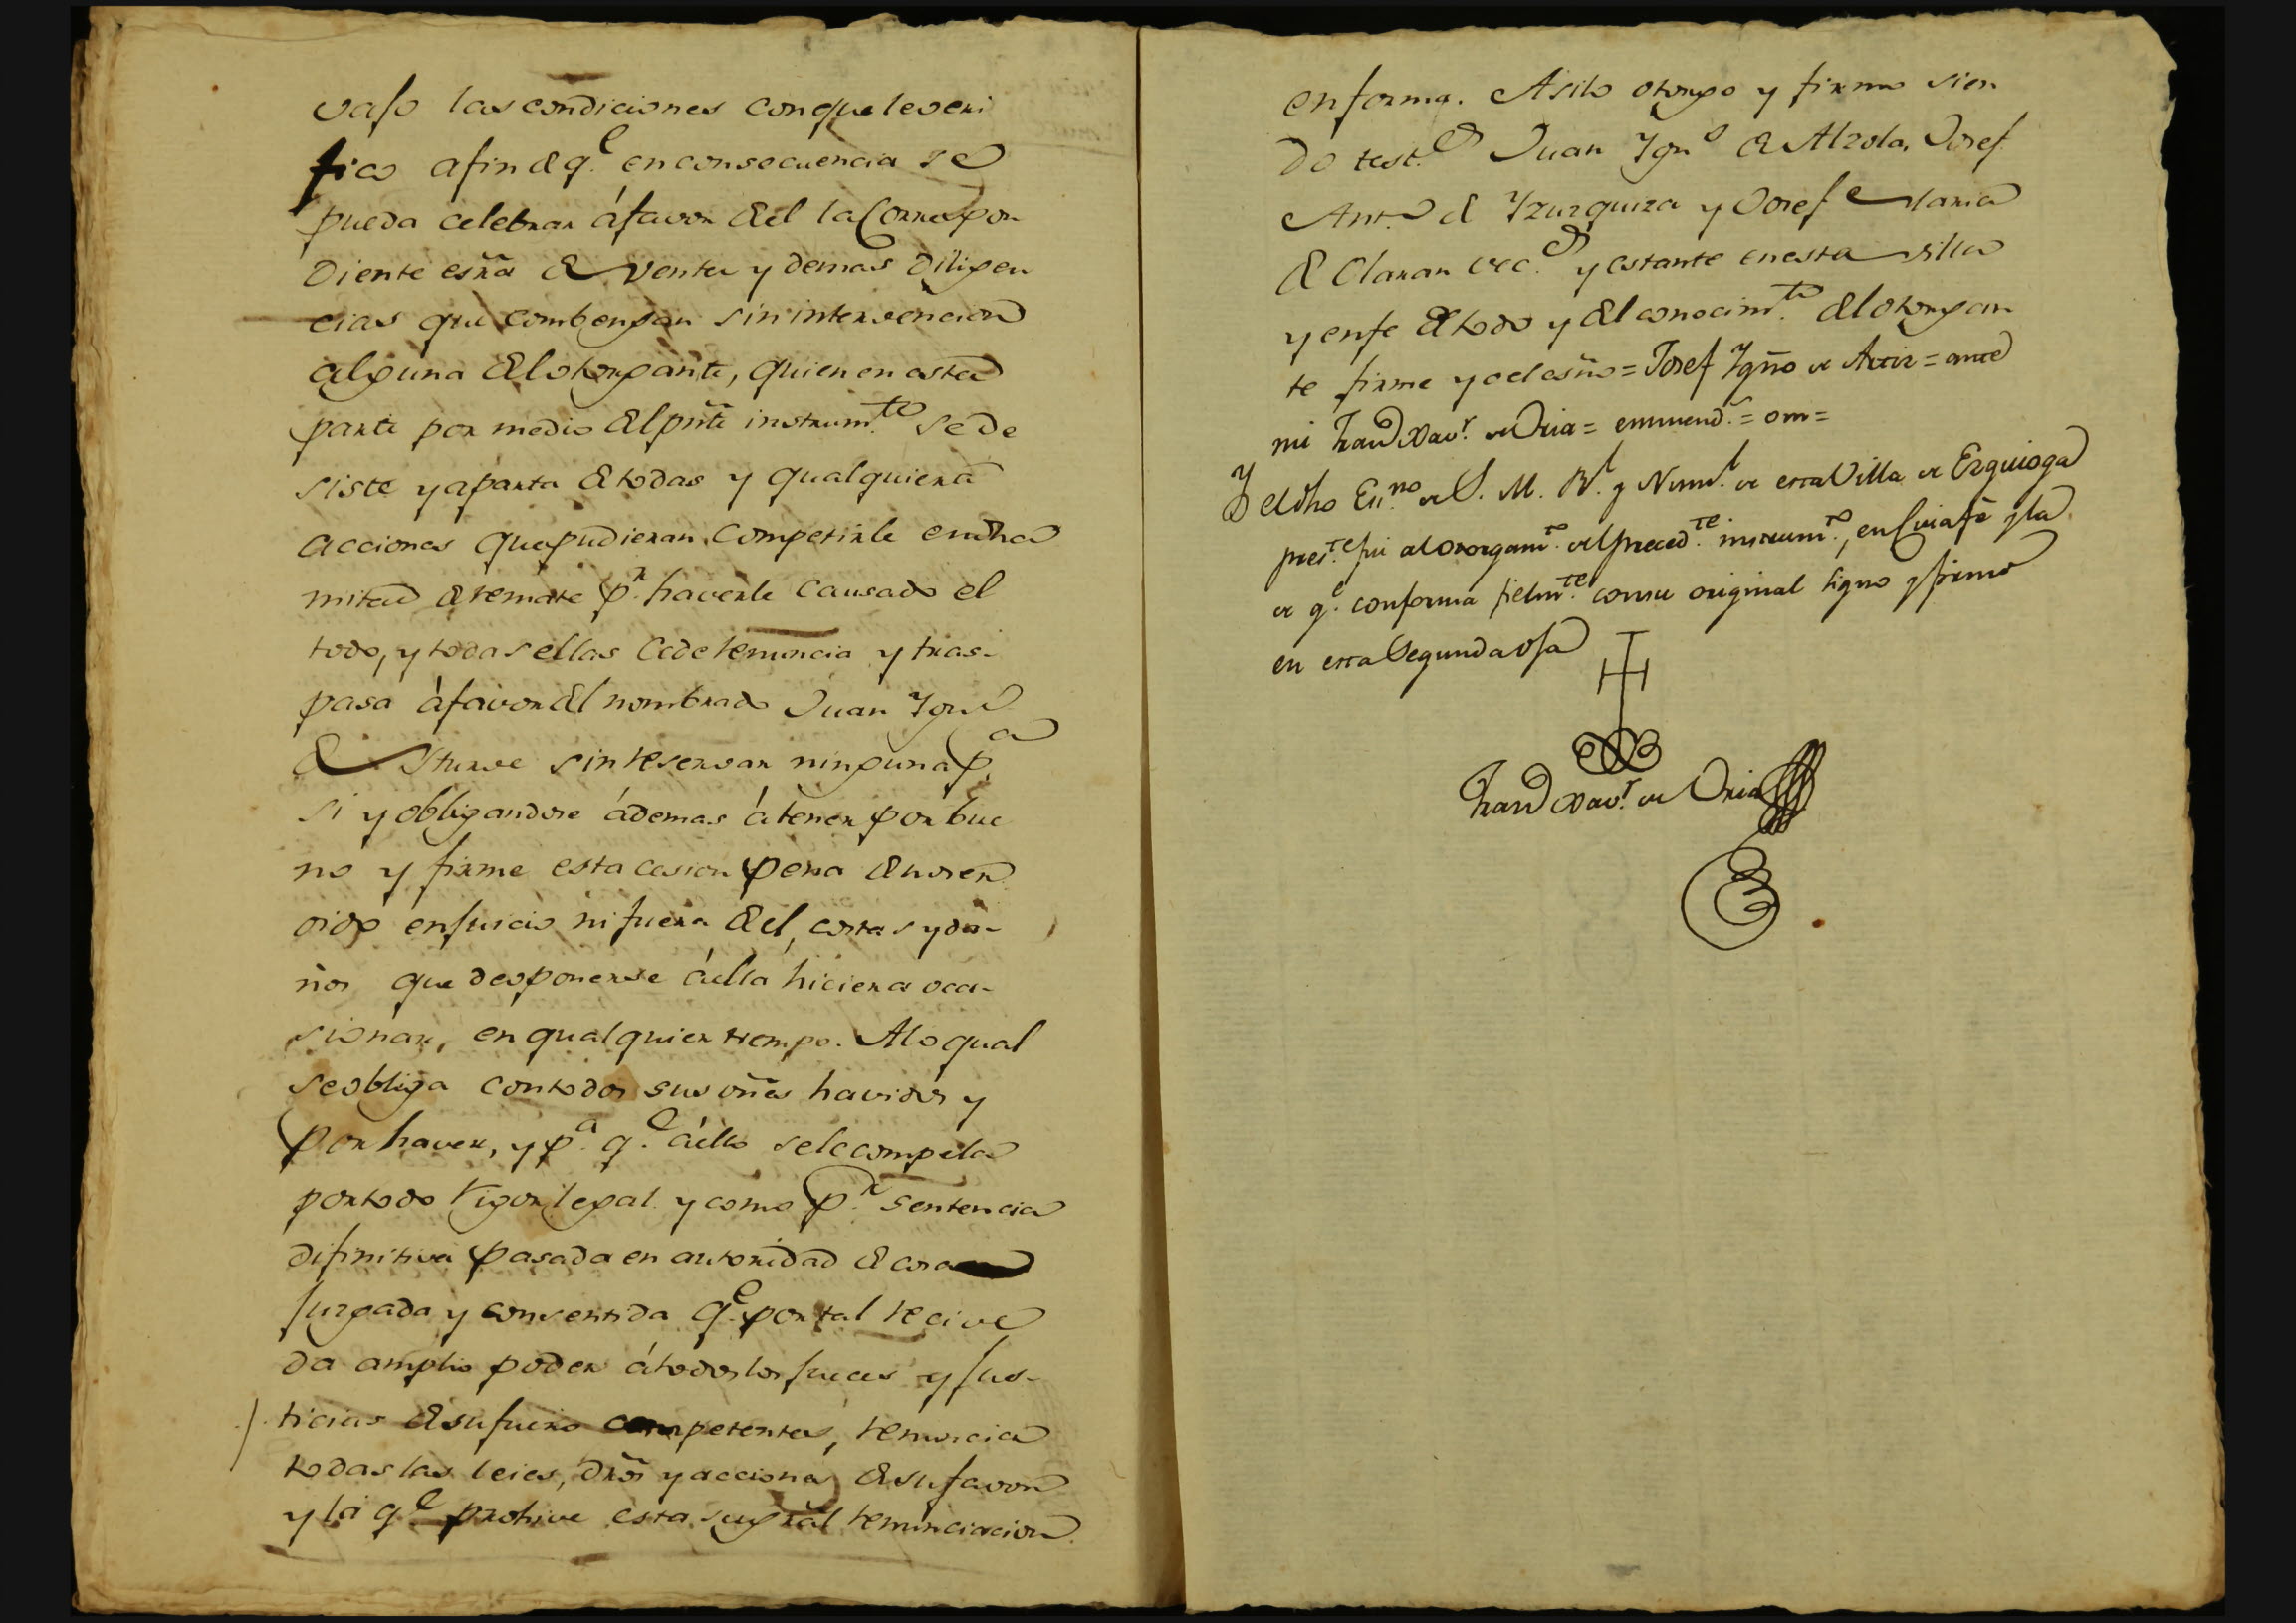 vajo las condiciones con que le veri
fico a fin de q.e en consecuencia se
pueda celebrar á favor de el la Correspon
diente esra de venta y demas diligen
cias que combengan sin intervencion
alguna del otorgante, quien en esta
parte por medio del pnte instrum.to se de
siste y aparta de todas y qualquiera
acciones que pudieran competirle en dha
mitad de remate p.r haverle causado el
todo, y todas ellas cede renuncia y tras-
pasa á favor del nombrado Juan Ign.o
de Yturve sin reservar ninguna p.a
si y obligandose ádemas á tener por bue
no y firme esta cesion pena de no ser
oido en juicio ni fuera de el, costas y da-
ños que de oponerse á ella hiciera oca-
sionar, en qualquier tiempo. A lo qual
se obliga con todos sus vñes havidos y
por haver, y p.a q.e á ello se le compela
por todo rigor legal y como p.r sentencia
difinitiva pasada en autoridad de cosa
juzgada y consentida q.e por tal recive
da amplio poder á todos los jueces y jus-
ticias de su fuero competentes, renuncia
todas las leies, dros y acciones de su favor
y la q.e prohive esta su gral renunciacion
en forma. Asi lo otorgo y firmo sien
do test.s Juan Ign.o de Alzola, Josef
Ant.o de Yzurquiza y Josef Maria
de Olaran vec.s y estante en esta villa
y en fe de todo y del conocim.to del otorgan
te firme yo el esno = Josef Ygño de Artiz = ante
mi Fran.co Xav.r de Oria = enmend.o = om =
Yo el dho Es.no de S. M. R.l y Num.l de esta Villa de Ezquioga
pres.te fui al otorgam.to del preced.te instrum.to, en Cuia fe y la
de q.e conforma fielm.te con su original signo y firmo
en esta Segunda oja
Fran.co Xav.r de Oria